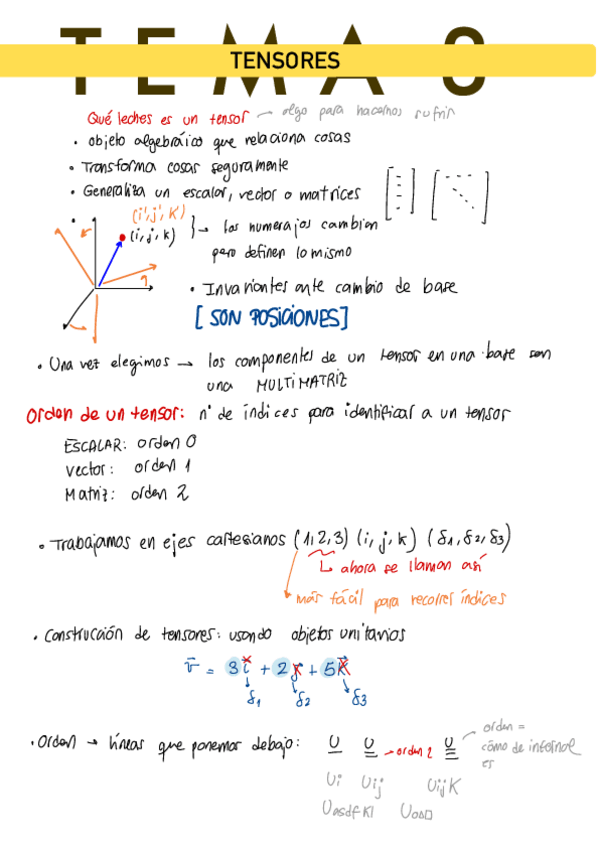 TEMA 8
TENSORES
Qué leches es un tensor → algo para hacernos sufrir
• objeto algebráico que relaciona cosas
• Transforma cosas seguramente
• Generaliza un escalar, vector o matrices
(i', j', k')
(i, j, k) } → los numerajos cambian
pero definen lo mismo
• Invariantes ante cambio de base
[SON POSICIONES]
• Una vez elegimos → los componentes de un tensor en una base son
una MULTIMATRIZ
Orden de un tensor: nº de índices para identificar a un tensor
ESCALAR: orden 0
vector: orden 1
Matriz: orden 2
• Trabajamos en ejes cartesianos (1, 2, 3) (i, j, k) (δ1, δ2, δ3)
↳ ahora se llaman así
más fácil para recorrer índices
• Construcción de tensores: usando objetos unitarios
v = 3i + 2j + 5k
δ1 δ2 δ3
• Orden → líneas que ponemos debajo: U U → orden 2 U
orden =
cómo de infernal
es
Ui Uij Uijk
Uasdfkl Uo△□